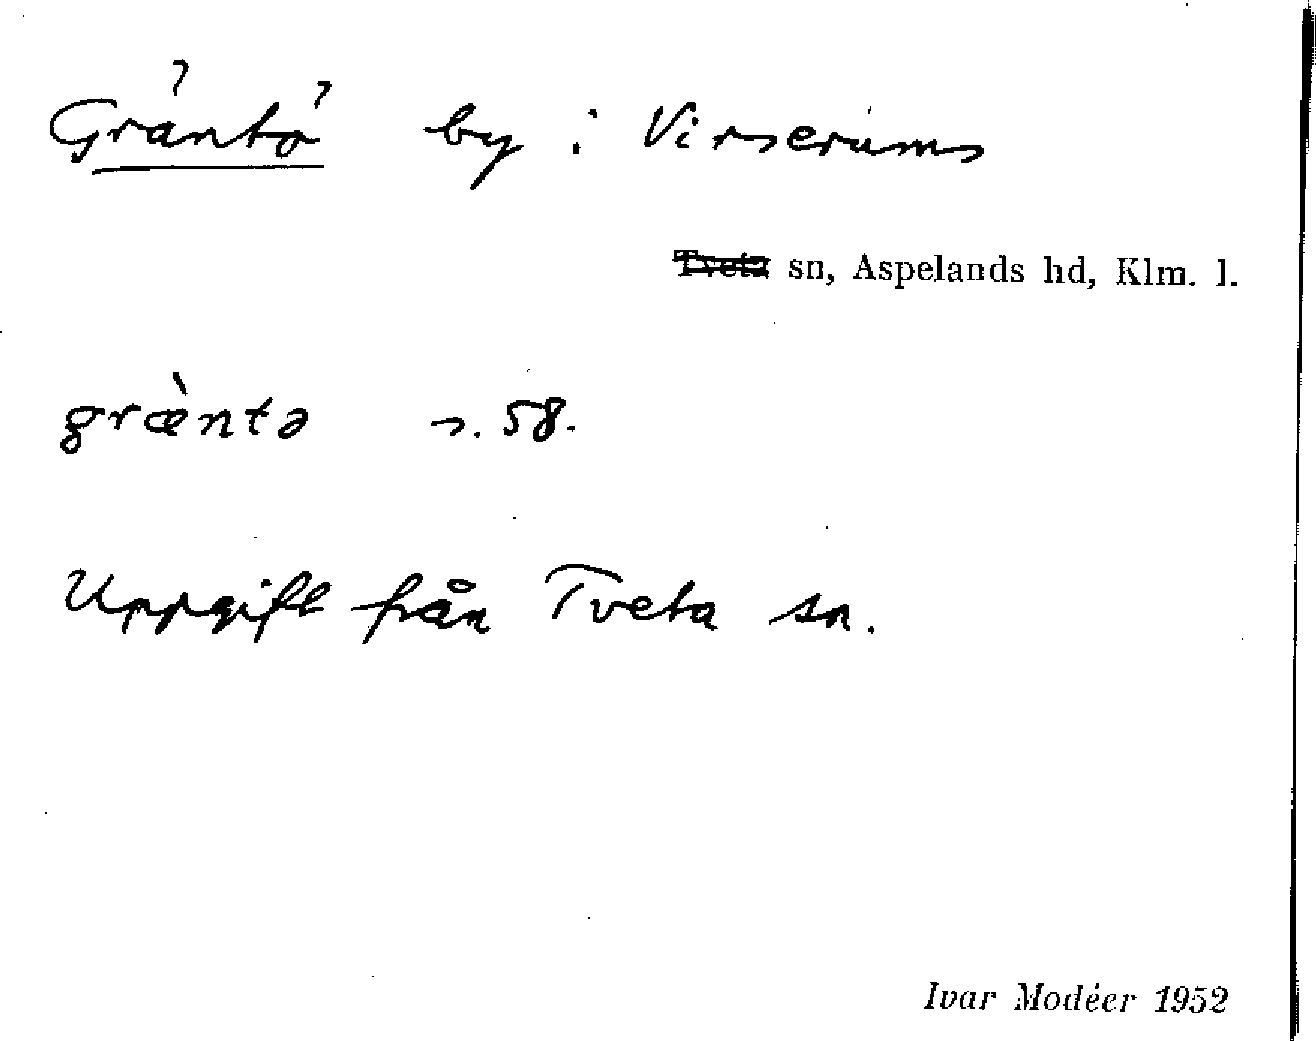 Gräntö by i Virserums
Tveta sn, Aspelands hd, Klm. l.
græ̀ntə s. 58.
Uppgift från Tveta sn.
Ivar Modéer 1952